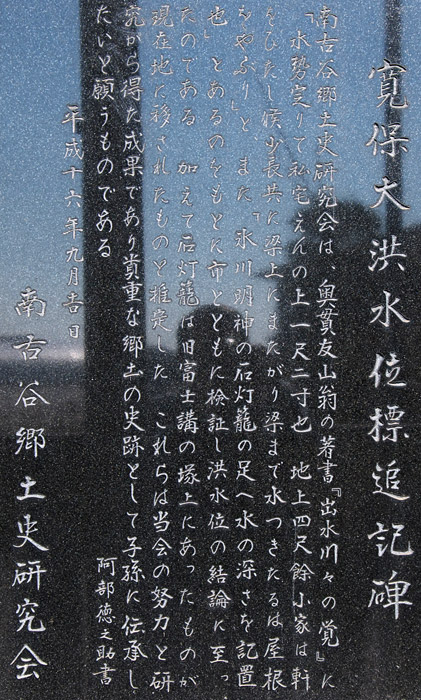 寛保大洪水位標追記碑
南古谷郷土史研究会は、奥貫友山翁の著書『出水川々の覚』に
「水勢実りて私宅えんの上一尺二寸也 地上四尺餘小家は軒
をひたし候少長共に梁上にまたがり梁まで水つきたるは屋根
をやぶり」と、また「氷川明神の石灯籠の足へ水の深さを記置
也」とあるのをもとに市とともに検証し洪水位の結論に至っ
たのである 加えて石灯籠は旧富士講の塚上にあったものが
現在地に移されたものと推定した これらは当会の努力と研
究から得た成果であり貴重な郷土の史跡として子孫に伝承し
たいと願うものである
平成十六年九月吉日
阿部徳之助書
南古谷郷土史研究会